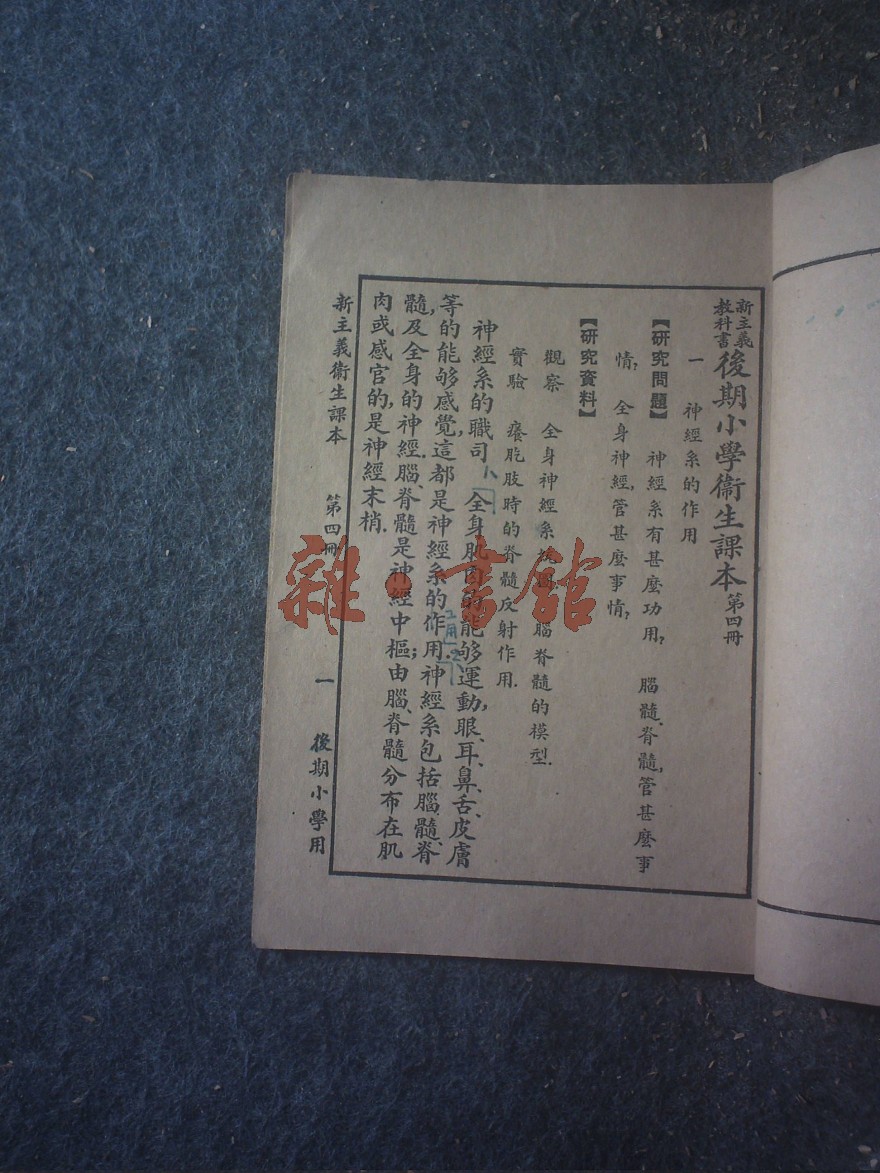 新主義教科書 後期小學衞生課本 第四冊
一 神經系的作用
【研究問題】 神經系有甚麼功用, 腦髓、脊髓,管甚麼事
情, 全身神經,管甚麼事情,
【研究資料】
觀察 全身神經系 腦脊髓的模型.
實驗 癢胣肢時的脊髓反射作用.
神經系的職司 全身肌肉的能够運動,眼、耳、鼻、舌、皮膚
等的能够感覺,這都是神經系的作用.神經系包括腦髓、脊
髓,及全身的神經.腦、脊髓是神經中樞;由腦、脊髓分布在肌
肉或感官的,是神經末梢.
新主義衞生課本 第四冊 一 後期小學用
雜·書館